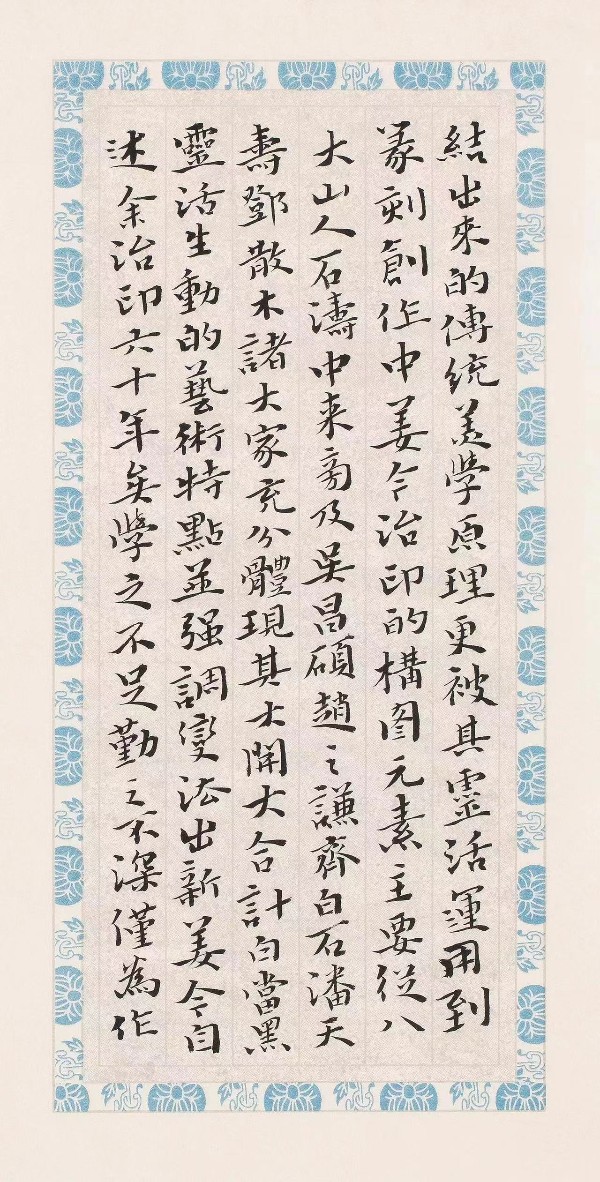 結出來的傳統美學原理更被其靈活運用到
篆刻創作中姜今治印的構图元素主要從八
大山人石濤中来旁及吳昌碩趙之謙齊白石潘天
壽鄧散木諸大家充分體現其大開大合計白當黑
靈活生動的藝術特點並强調變法出新姜今自
述余治印六十年矣學之不足勤之不深僅為作